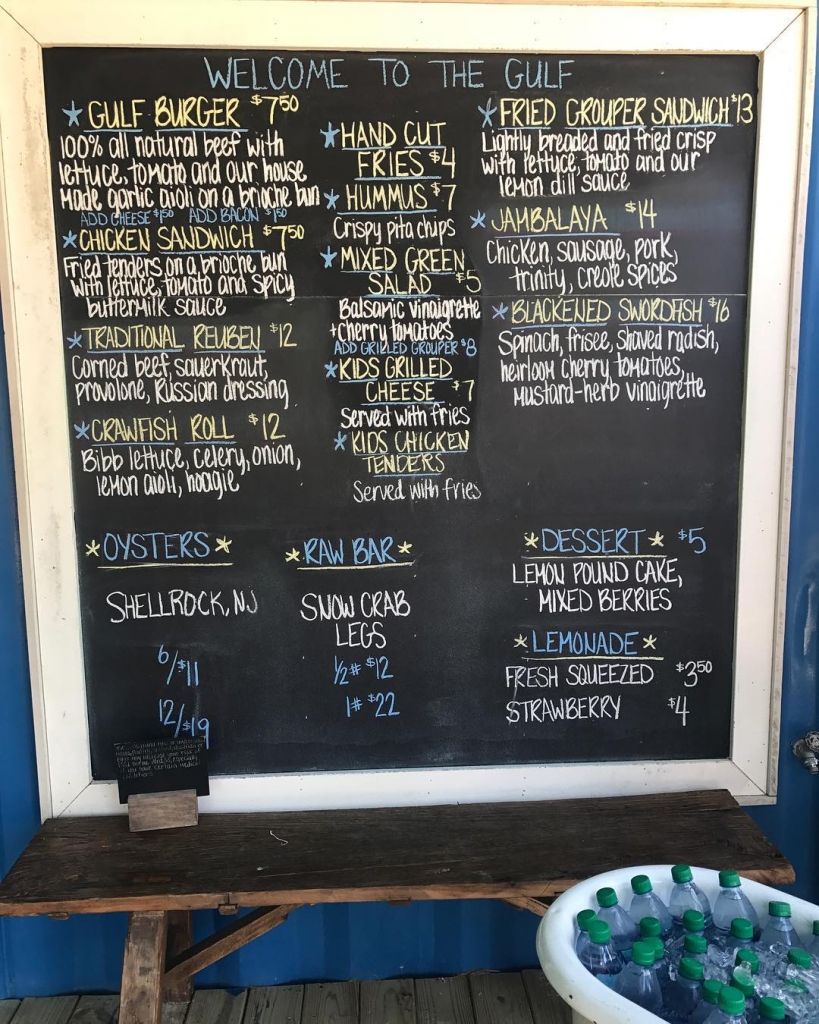 WELCOME TO THE GULF
★ GULF BURGER $7.50
100% all natural beef with
lettuce, tomato and our house
made garlic aioli on a brioche bun
ADD CHEESE $1.50 ADD BACON $1.50
★ CHICKEN SANDWICH $7.50
Fried tenders on a brioche bun
with lettuce, tomato and spicy
buttermilk sauce
★ TRADITIONAL REUBEN $12
Corned beef, sauerkraut,
provolone, Russian dressing
★ CRAWFISH ROLL $12
Bibb lettuce, celery, onion,
lemon aioli, hoagie
★ HAND CUT
FRIES $4
★ HUMMUS $7
Crispy pita chips
★ MIXED GREEN
SALAD $5
Balsamic vinaigrette
+ cherry tomatoes
ADD GRILLED GROUPER $8
★ KIDS GRILLED
CHEESE $7
Served with fries
★ KIDS CHICKEN
TENDERS
Served with fries
★ FRIED GROUPER SANDWICH $13
Lightly breaded and fried crisp
with lettuce, tomato and our
lemon dill sauce
★ JAMBALAYA $14
Chicken, sausage, pork,
trinity, creole spices
★ BLACKENED SWORDFISH $16
Spinach, frisee, shaved radish,
heirloom cherry tomatoes,
mustard-herb vinaigrette
★ OYSTERS ★
SHELLROCK, NJ
6/$11
12/$19
★ RAW BAR ★
SNOW CRAB
LEGS
1/2# $12
1# $22
★ DESSERT ★ $5
LEMON POUND CAKE,
MIXED BERRIES
★ LEMONADE ★
FRESH SQUEEZED $3.50
STRAWBERRY $4